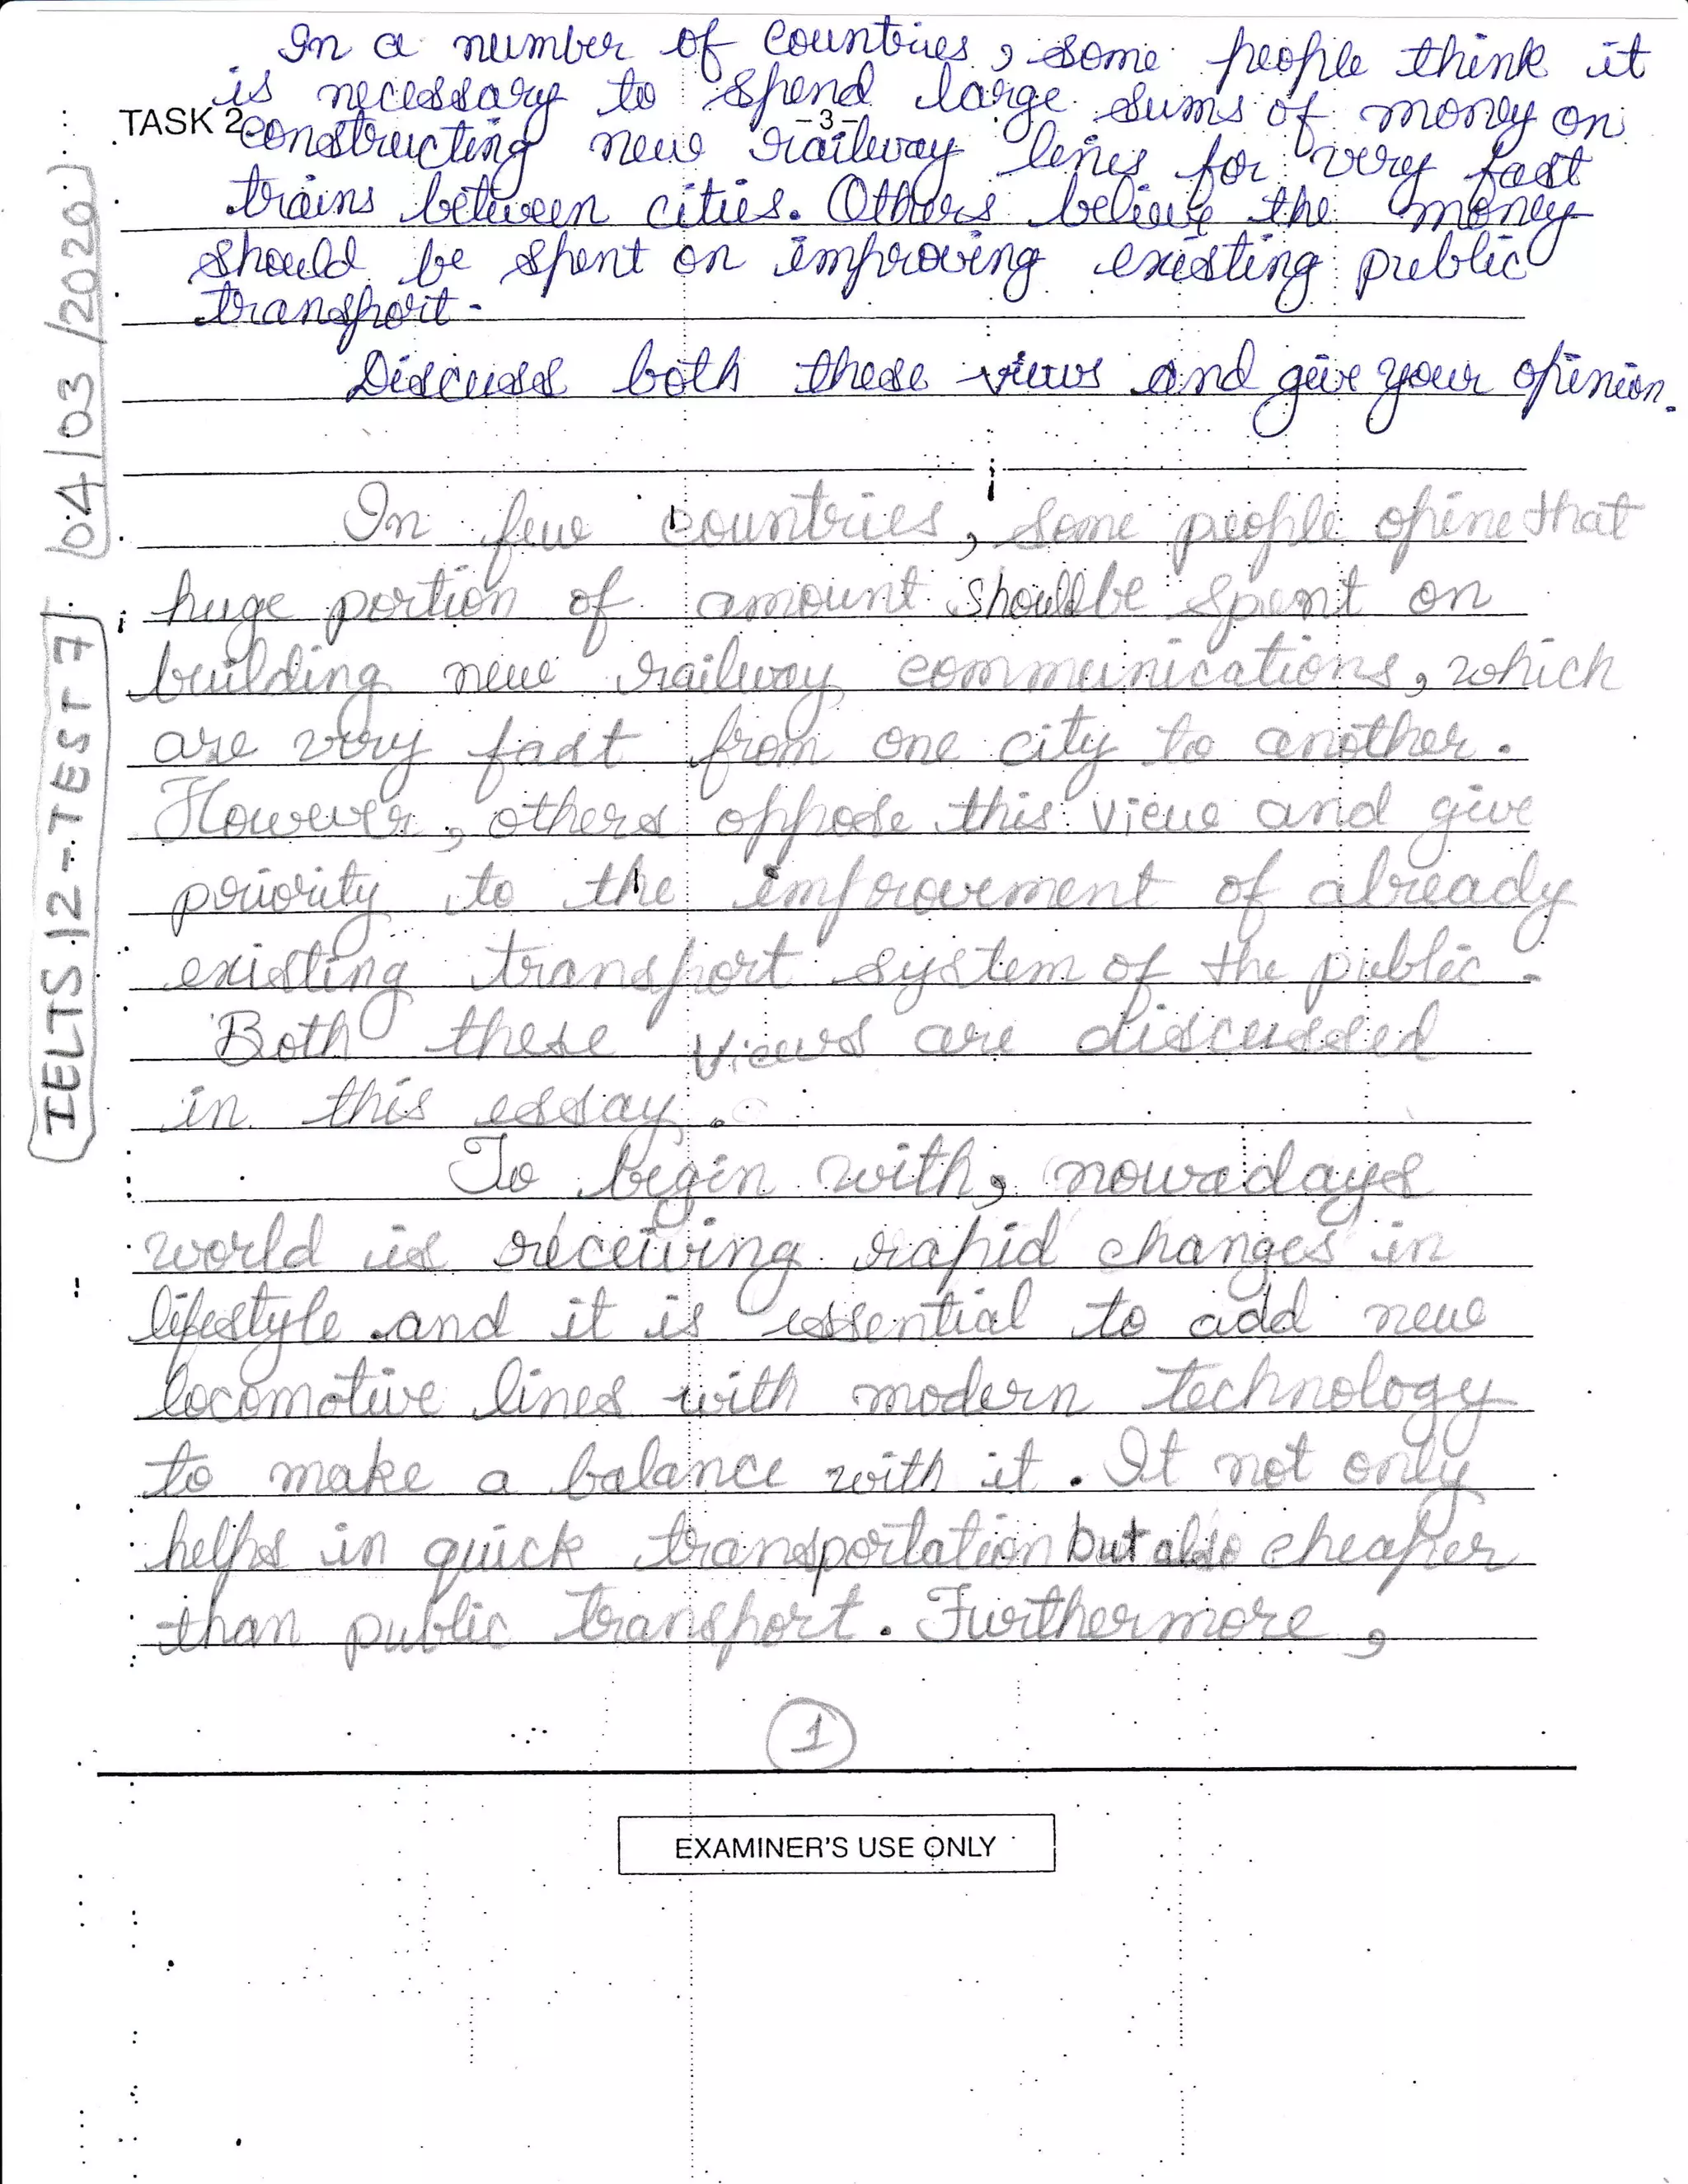 In a number of countries, some people think it
is necessary to spend large sums of money on
TASK 2
- 3 -
constructing new railway lines for very fast
trains between cities. Others believe the money
should be spent on improving existing public
transport.
Discuss both these views and give your opinion.
04/03/2020
IELTS 12 - TEST 7
In few countries, some people opine that
huge portion of amount should be spent on
building new railway communications, which
are very fast from one city to another.
However, others oppose this view and give
priority to the improvement of already
existing transport system of the public.
Both these views are discussed
in this essay.
To begin with, nowadays
world is receiving rapid changes in
lifestyle and it is essential to add new
locomotive lines with modern technology
to make a balance with it. It not only
helps in quick transportation but also cheaper
than public transport. Furthermore,
1
EXAMINER'S USE ONLY